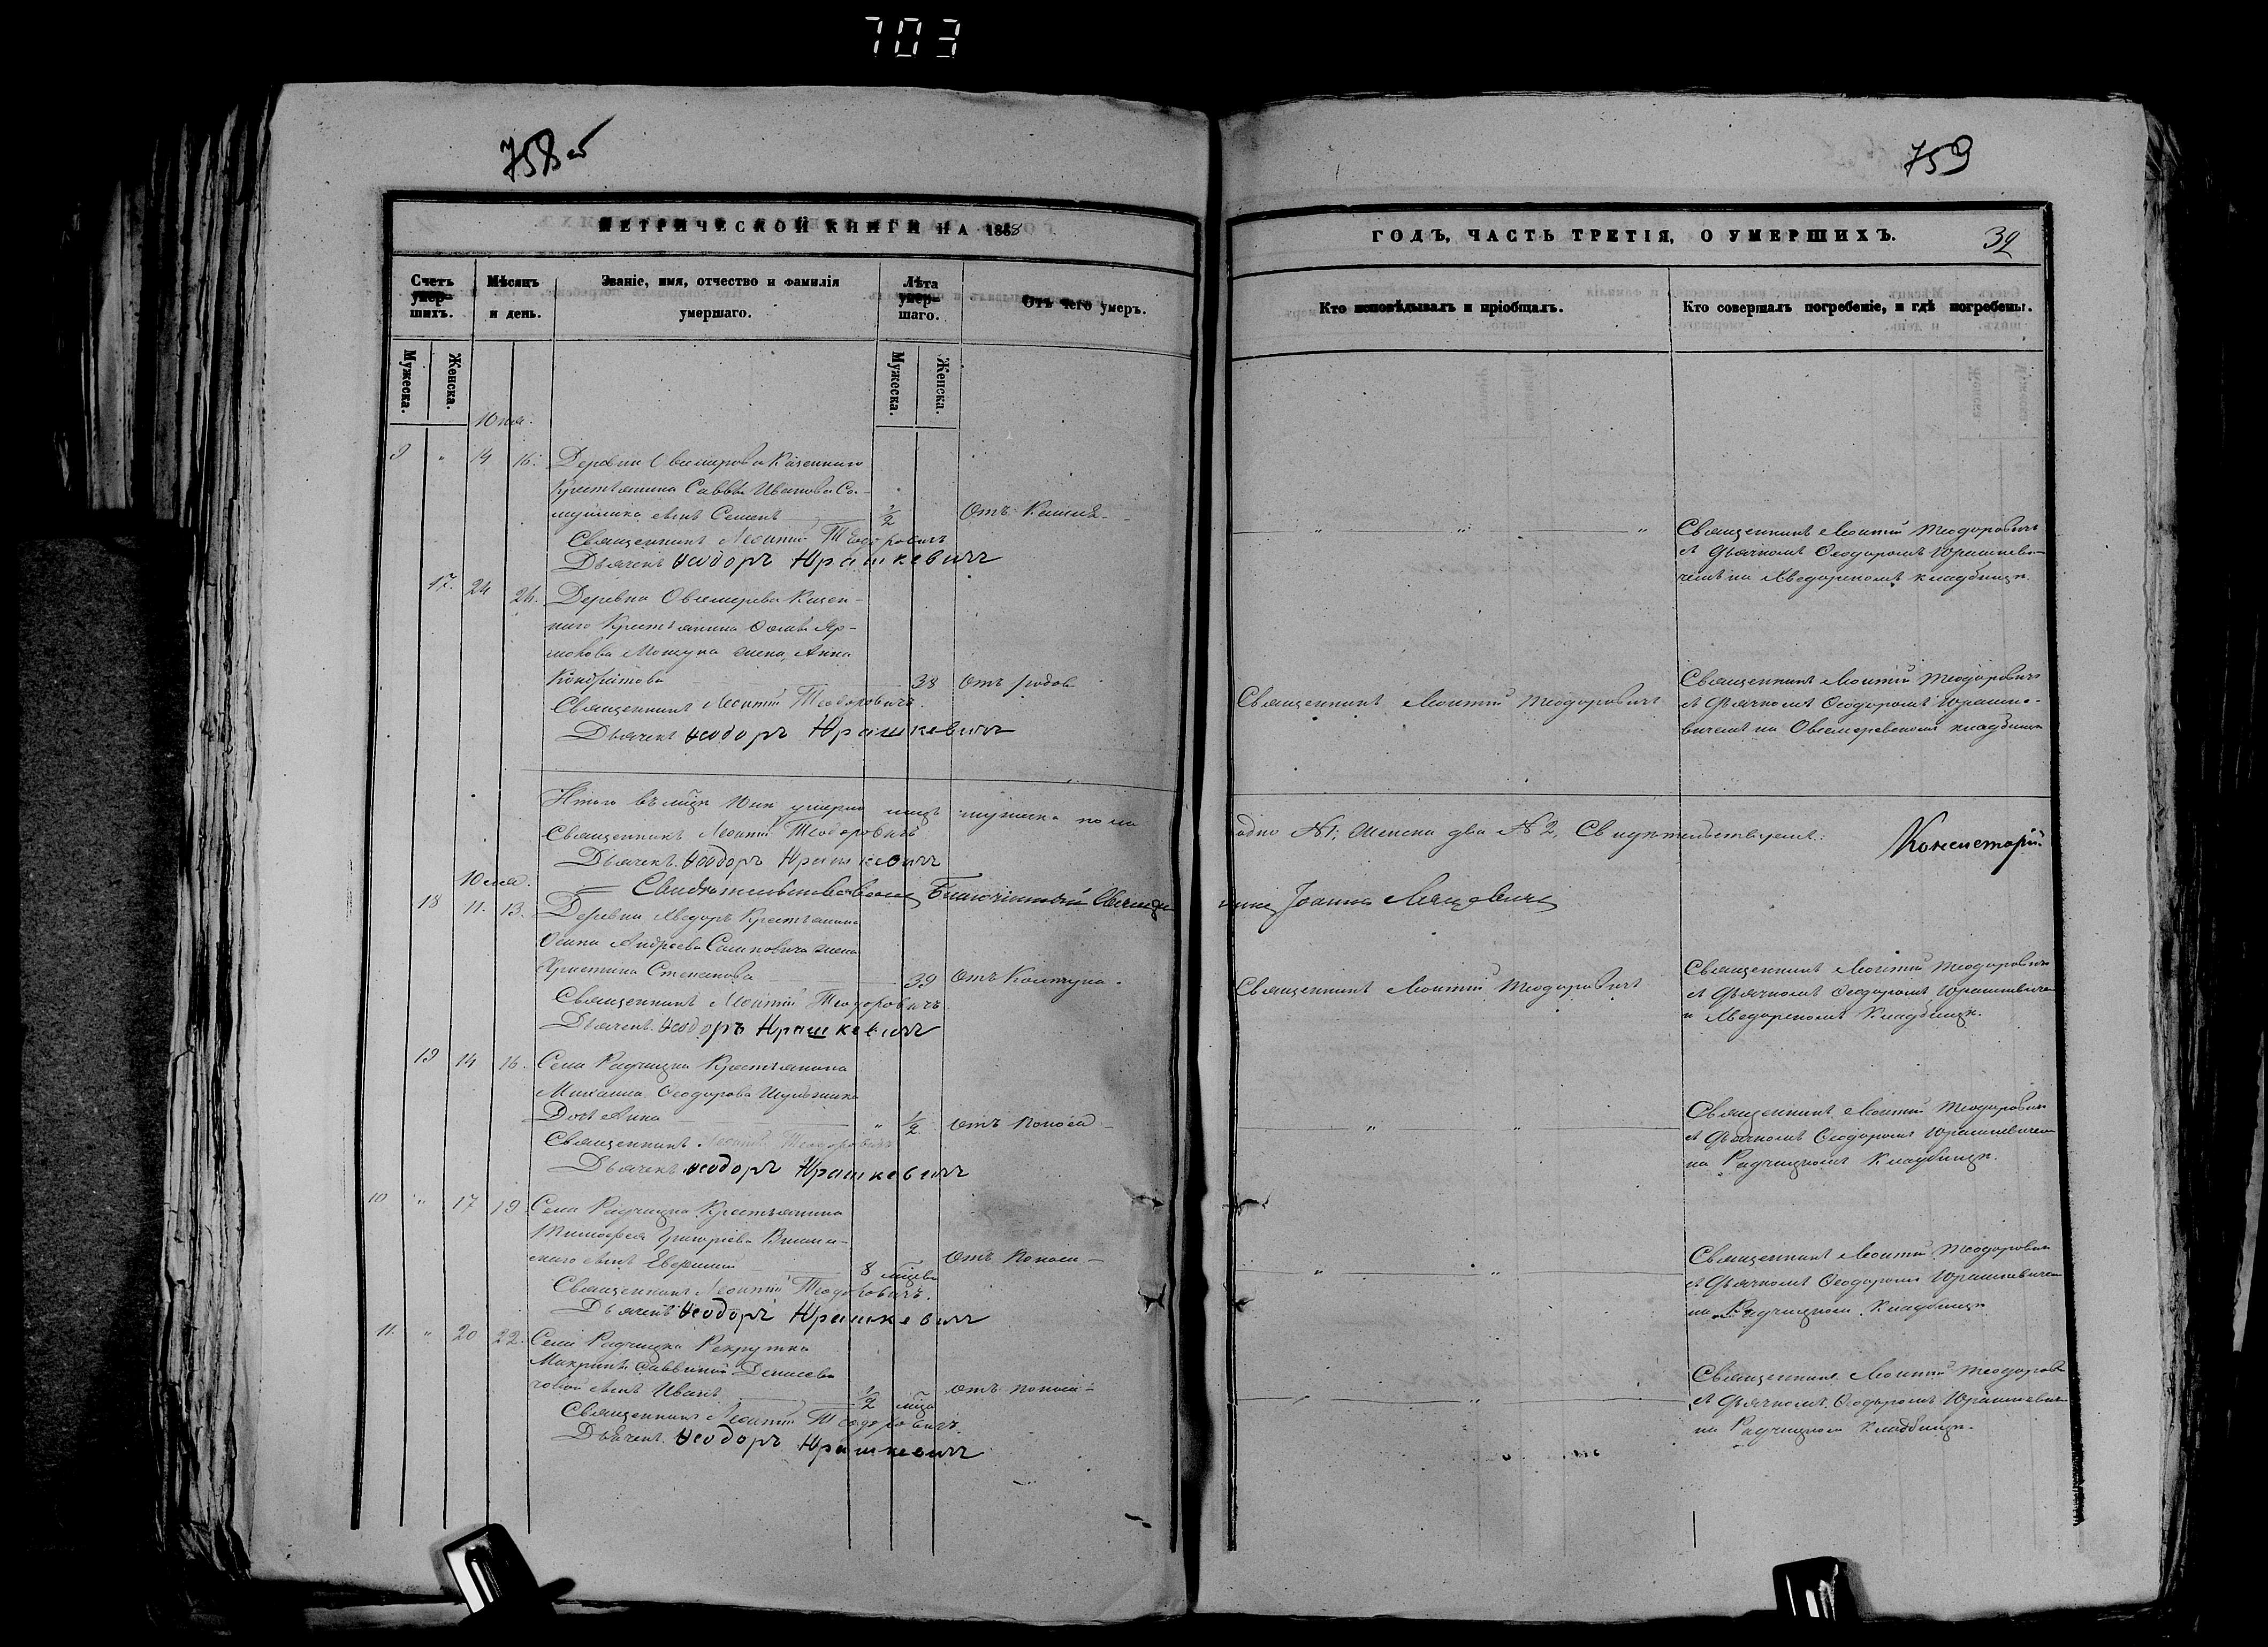 703
758 об
МЕТРИЧЕСКОЙ КНИГИ НА 1868
Счетъ умер-шихъ.
Мѣсяцъ и день.
Званіе, имя, отчество и фамилія умершаго.
Лѣта умер-шаго.
Отъ чего умеръ.
Мужеска.
Женска.
Мужеска.
Женска.
Юня.
9 " 14 16. Деревни Овсемирова Казеннаго
Крестьянина Саввы Иванова Са-
сынъ Семенъ 1/2 Отъ Кашля
Священникъ Леонтій Теодоровичъ
Дьячекъ Ѳеодоръ Юрашкевичъ
17. 24 26. Деревни Овсемирова Казен-
наго Крестьянина
жена Анна
38 Отъ родов
Священникъ Леонтій Теодоровичъ
Дьячекъ Ѳеодоръ Юрашкевичъ
Итого въ мцѣ Юнѣ умерло лицъ мужеска пола
Священникъ Леонтій Теодоровичъ
Дьячекъ Ѳеодоръ Юрашкевичъ
Юля.
Благочинный Священ
18 11. 13. Деревни Хведоръ Крестьянина
Осипа Андреева жена
Христина Степанова 39 Отъ Колтуна.
Священникъ Леонтій Теодоровичъ
Дьячекъ Ѳеодоръ Юрашкевичъ
19 14 16. Села Радчицка Крестьянина
Михаила Ѳеодорова
Дочь Анна " 1/2 Отъ поноса
Священникъ Леонтій Теодоровичъ
Дьячекъ Ѳеодоръ Юрашкевичъ
10 " 17 19. Села Радчицка Крестьянина
Тимофея Григорьева
сынъ 8 мцевъ Отъ поноса
Священникъ Леонтій Теодоровичъ.
Дьячекъ Ѳеодоръ Юрашкевичъ
11. " 20 22. Села Радчицка Рекрутки
сынъ Иванъ 1/2 мцa Отъ поноса
Священникъ Леонтій Теодоровичъ.
Дьячекъ Ѳеодоръ Юрашкевичъ
759
ГОДЪ, ЧАСТЬ ТРЕТІЯ, О УМЕРШИХЪ.
32
Кто исповѣдывалъ и пріобщалъ.
Кто совершалъ погребеніе, и гдѣ погребены.
Священникъ Леонтій Теодоровичъ
съ Дьячкомъ Ѳеодоромъ Юрашкеви-
чемъ на Хведорскомъ кладбищѣ.
Священникъ Леонтій Теодоровичъ
Священникъ Леонтій Теодоровичъ
съ Дьячкомъ Ѳеодоромъ Юрашке-
вичемъ на Овсемировскомъ кладбищѣ
одно №1; женска два №2, Свидѣтельствуемъ:
Консисторій.
Іоаннъ
Священникъ Леонтій Теодоровичъ
Священникъ Леонтій Теодоровичъ
съ Дьячкомъ Ѳеодоромъ Юрашкевичемъ
н Хведорскомъ Кладбищѣ.
Священникъ Леонтій Теодоровичъ
съ Дьячкомъ Ѳеодоромъ Юрашкевичемъ
на Радчицкомъ Кладбищѣ.
Священникъ Леонтій Теодоровичъ
съ Дьячкомъ Ѳеодоромъ Юрашкевичемъ
на Радчицкомъ Кладбищѣ
Священникъ Леонтій Теодоровичъ
съ Дьячкомъ Ѳеодоромъ Юрашкевичемъ
на Радчицкомъ Кладбищѣ.